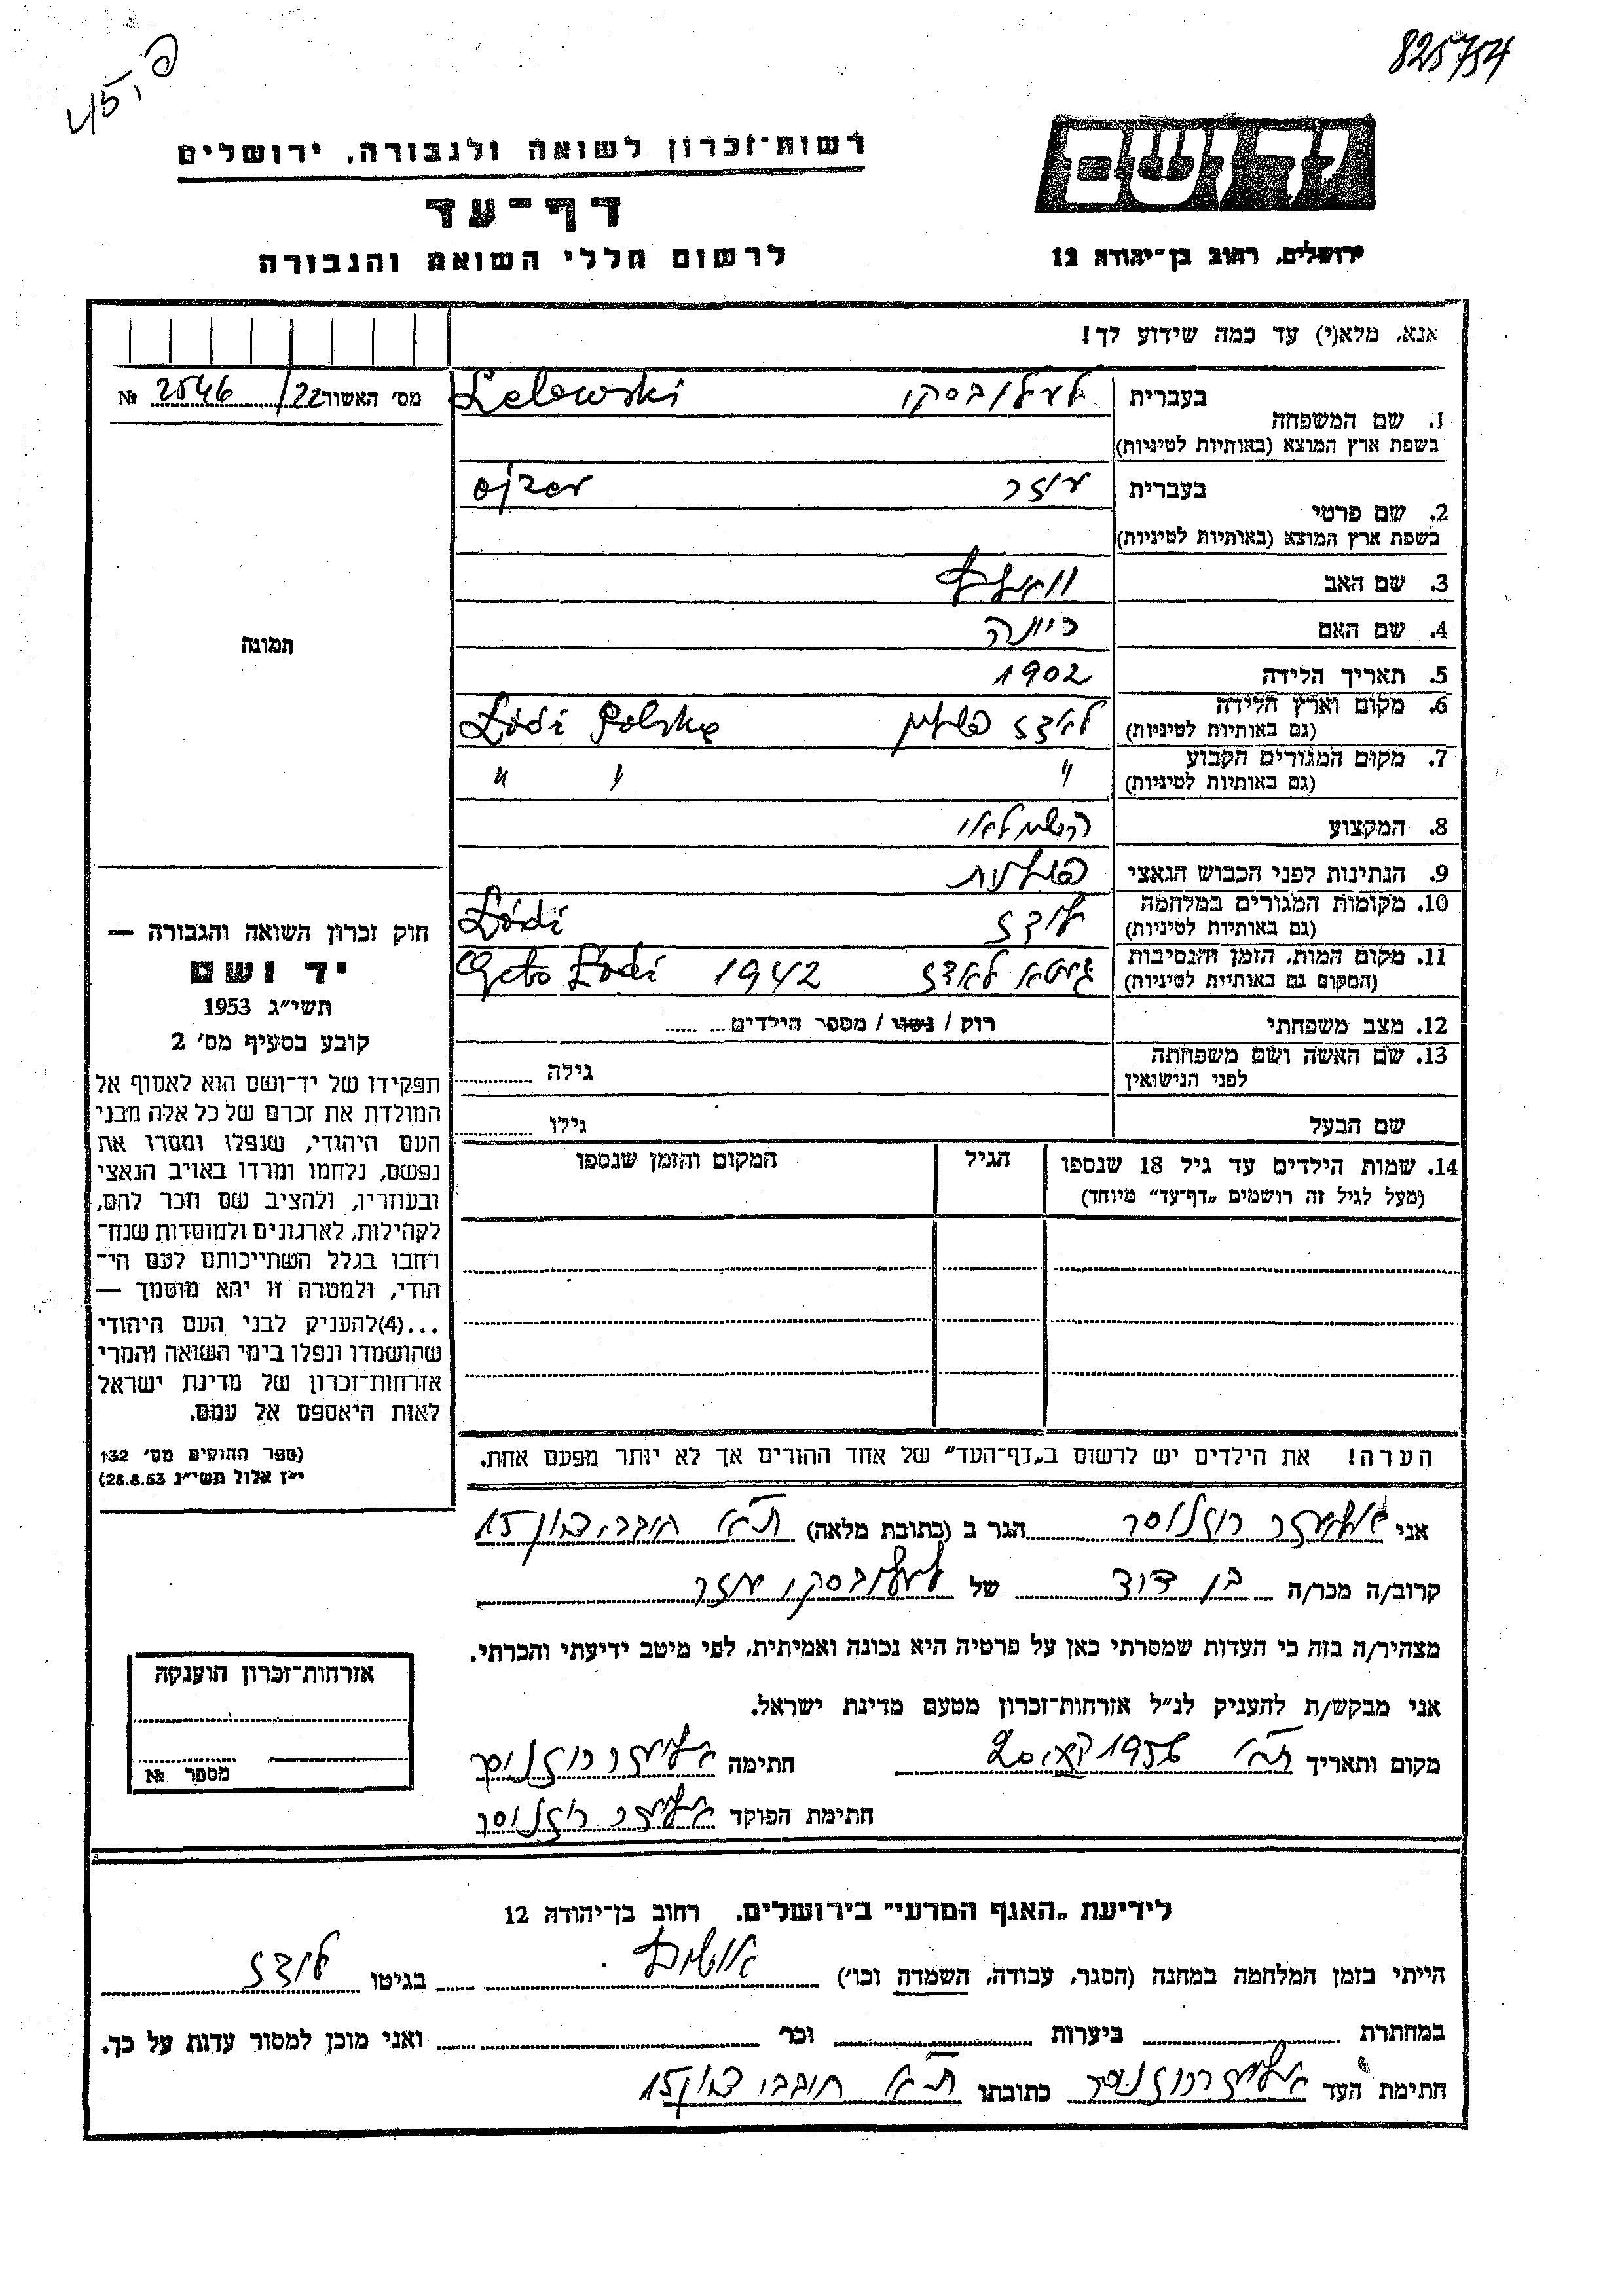 825754
רשות־זכרון לשואה ולגבורה, ירושלים
דף־עד
לרשום חללי השואה והגבורה
יד ושם
ירושלים, רחוב בן־יהודה 12
אנא, מלא(י) עד כמה שידוע לך!
מס׳ האשור 22/ 2546 №
1. שם המשפחה
בעברית לעלובסקי Lelewski
בשפת ארץ המוצא (באותיות לטיניות)
2. שם פרטי
בעברית עוזר
בשפת ארץ המוצא (באותיות לטיניות)
3. שם האב
4. שם האם
5. תאריך הלידה 1902
6. מקום וארץ הלידה
(גם באותיות לטיניות) לאדז פוילין Łódź Polska
7. מקום המגורים הקבוע
(גם באותיות לטיניות) " " "
8. המקצוע
9. הנתינות לפני הכבוש הנאצי פוילנית
10. מקומות המגורים במלחמה
(גם באותיות לטיניות) לודז Łódź
11. מקום המות, הזמן והנסיבות
(המקום גם באותיות לטיניות) גיטא לאדז 1942 Geto Łódź
12. מצב משפחתי רוק / נשוי / מספר הילדים
13. שם האשה ושם משפחתה
לפני הנישואין גילה
שם הבעל גילו
14. שמות הילדים עד גיל 18 שנספו
(מעל לגיל זה רושמים „דף־עד" מיוחד)
הגיל
המקום והזמן שנספו
הערה! את הילדים יש לרשום ב„דף־העד" של אחד ההורים אך לא יותר מפעם אחת.
תמונה
חוק זכרון השואה והגבורה —
יד ושם
תשי״ג 1953
קובע בסעיף מס׳ 2
תפקידו של יד־ושם הוא לאסוף אל
המולדת את זכרם של כל אלה מבני
העם היהודי, שנפלו ומסרו את
נפשם, נלחמו ומרדו באויב הנאצי
ובעוזריו, ולהציב שם וזכר להם,
לקהילות, לארגונים ולמוסדות שנח־
רחבו בגלל השתייכותם לעם הי־
הודי, ולמטרה זו יהא מוסמך —
...(4)להעניק לבני העם היהודי
שהושמדו ונפלו בימי השואה והמרי
אזרחות־זכרון של מדינת ישראל
לאות היאספם אל עמם.
(ספר החוקים מס׳ 132
י״ז אלול תשי״ג 28.8.53)
אני אליעזר הגר ב (כתובת מלאה) ת״א חובבי ציון 15
קרוב/ה מכר/ה בן דוד של לעלובסקי עוזר
מצהיר/ה בזה כי העדות שמסרתי כאן על פרטיה היא נכונה ואמיתית, לפי מיטב ידיעתי והכרתי.
אני מבקש/ת להעניק לנ״ל אזרחות־זכרון מטעם מדינת ישראל.
מקום ותאריך ת״א 1956 חתימה אליעזר
חתימת הפוקד אליעזר
אזרחות־זכרון הוענקה
מספר №
לידיעת „האגף המדעי" בירושלים. רחוב בן־יהודה 12
הייתי בזמן המלחמה במחנה (הסגר, עבודה, השמדה וכו׳) בגיטו לודז
במחתרת ביערות וכו׳ ואני מוכן למסור עדות על כך.
חתימת העד אליעזר כתובתו ת״א חובבי ציון 15